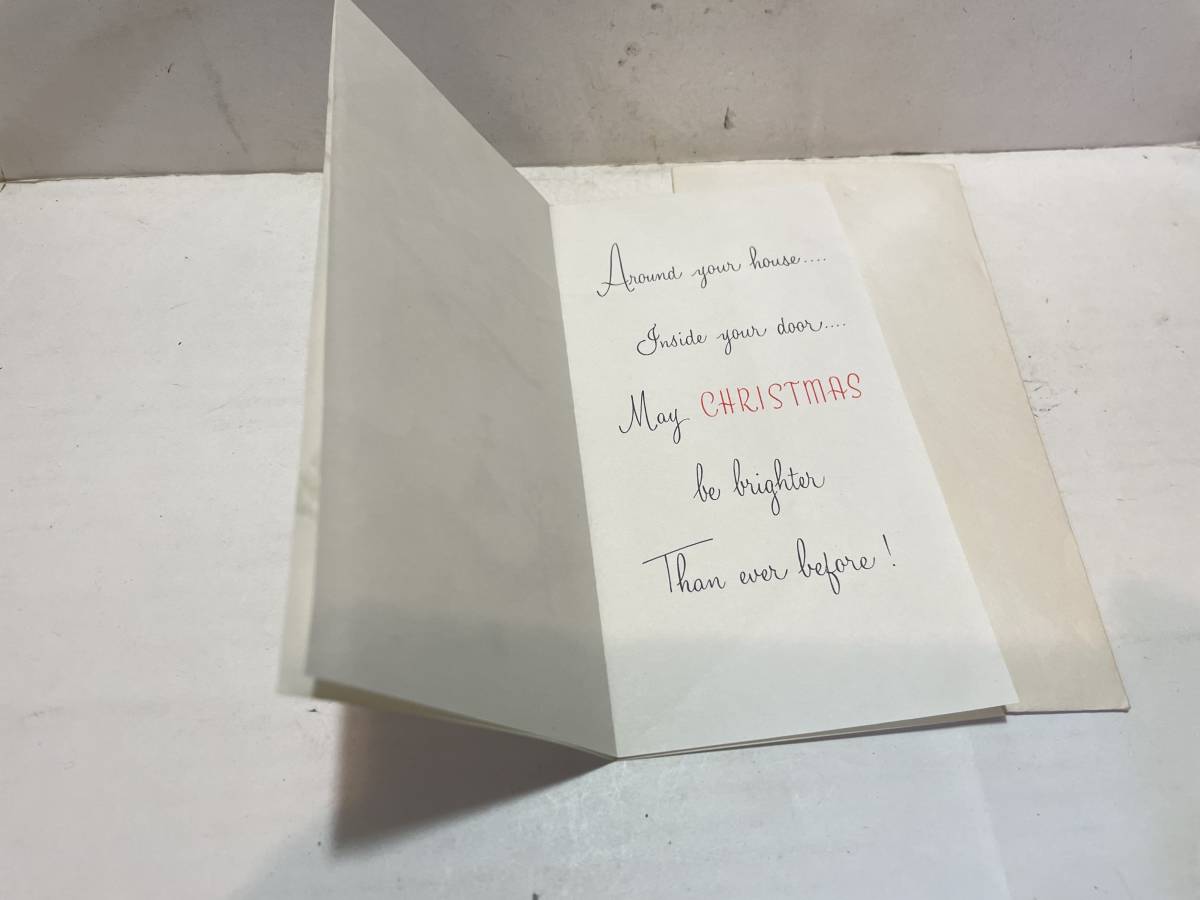 Around your house....
Inside your door....
May CHRISTMAS
be brighter
Than ever before!